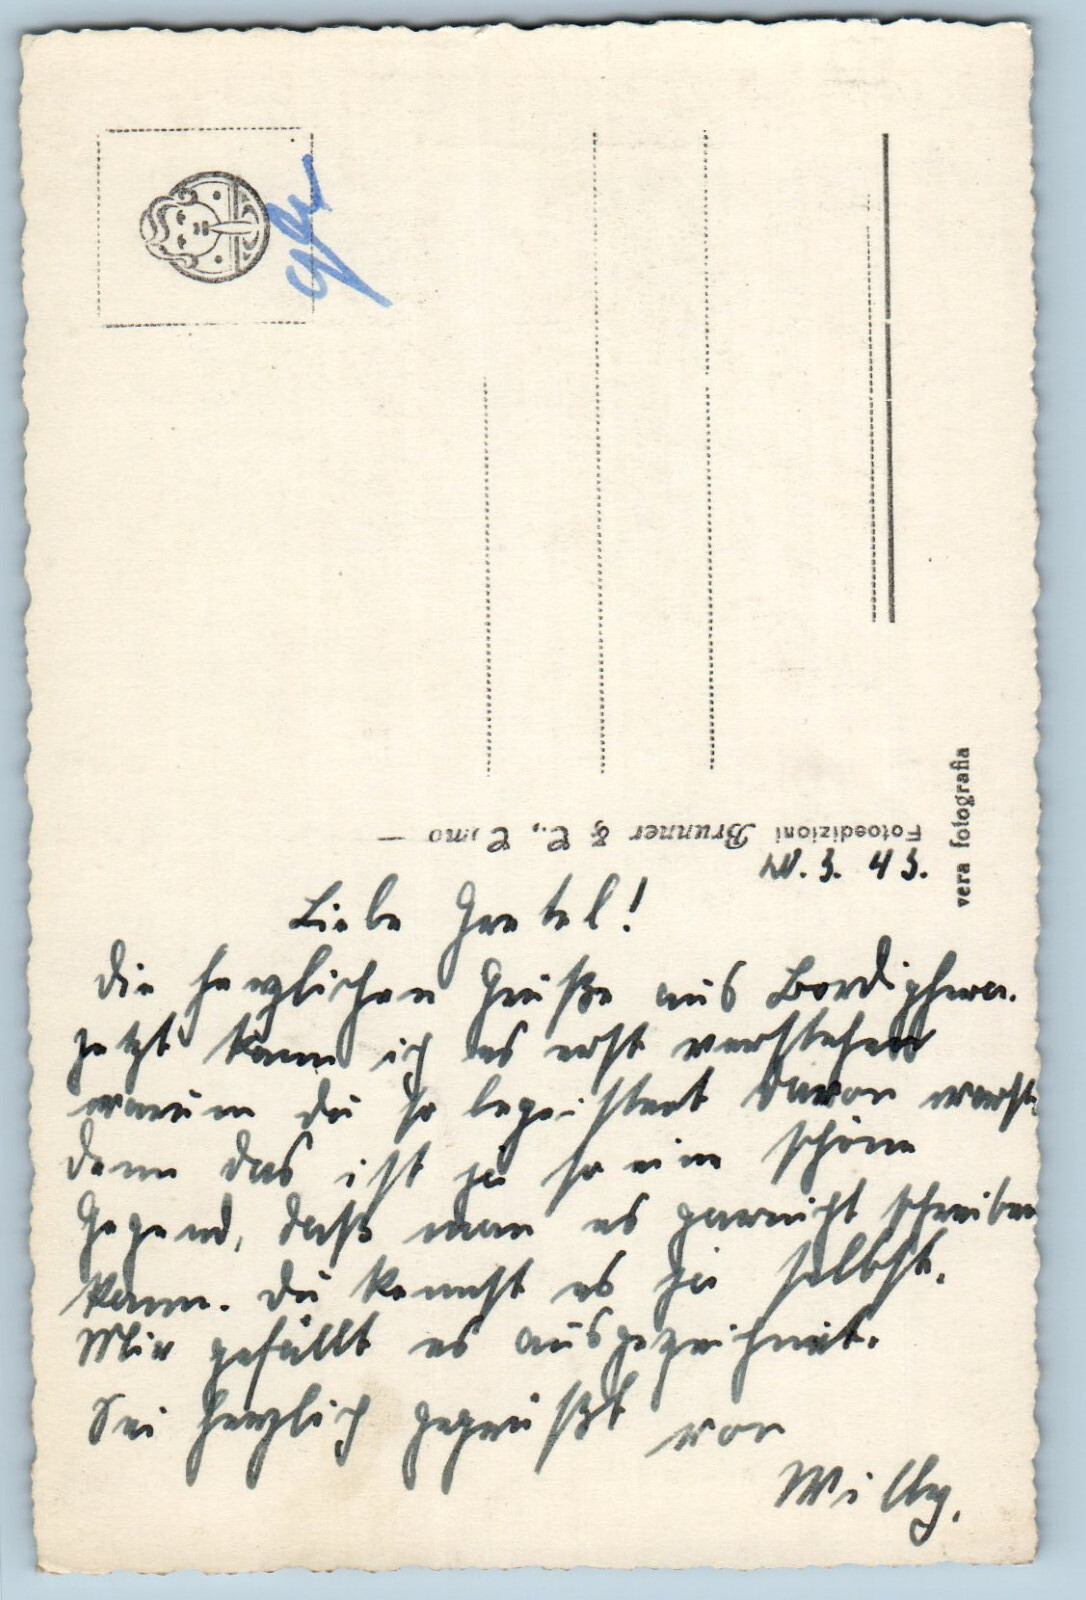 Fotoedizioni Brunner & C., Como
vera fotografia
3. 43.
Liebe Gretel!
Die herzlichen Grüße aus Bordighera.
Jetzt kann ich es erst verstehen
warum Du so begeistert davon warst,
denn das ist ja so eine schöne
Gegend, daß man es garnicht schreiben
kann. Du kennst es ja selbst.
Mir gefällt es ausgezeichnet.
Sei herzlich gegrüßt von
Willy.